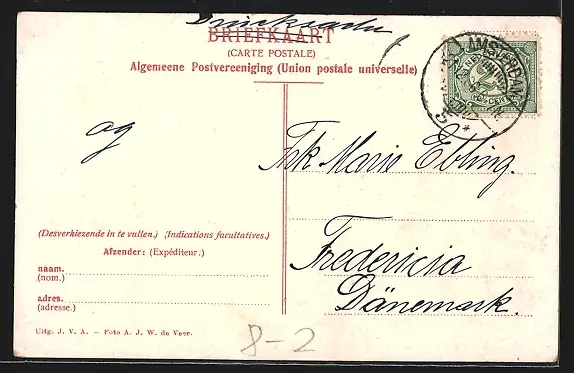 Drucksache
BRIEFKAART
(CARTE POSTALE)
Algemeene Postvereeniging (Union postale universelle)
AMSTERDAM
og
Frk Marie Ebling.
Fredericia
Dänemark.
(Desverkiezende in te vullen.) (Indications facultatives.)
Afzender: (Expéditeur:)
naam.
(nom.)
adres.
(adresse.)
Uitg. J. V. A. — Foto A. J. W. de Veer.
8-2